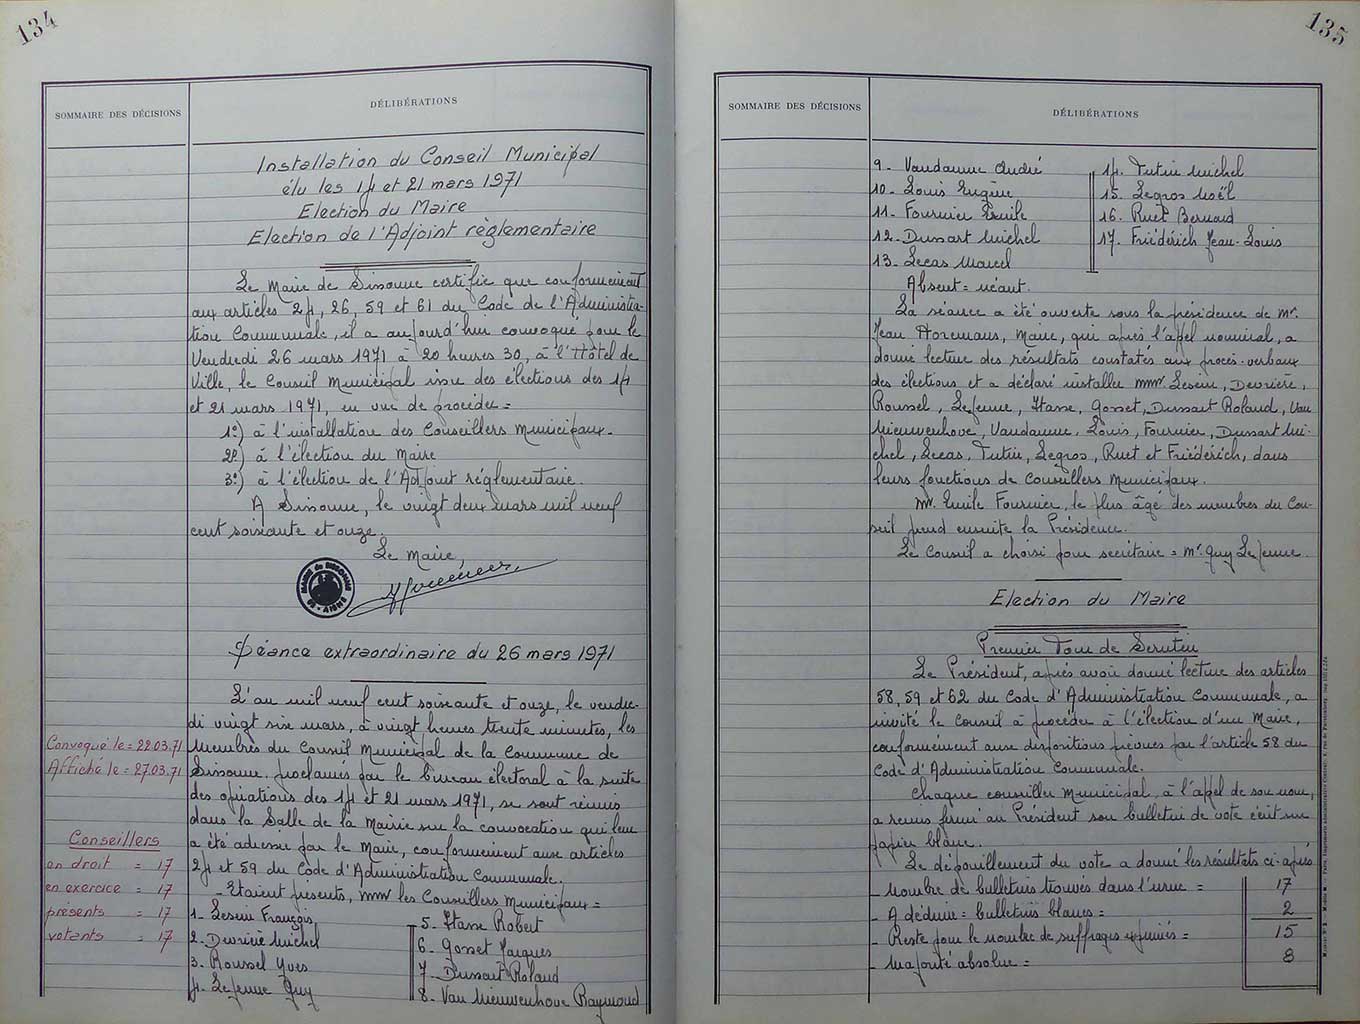 134
SOMMAIRE DES DÉCISIONS
DÉLIBÉRATIONS
Installation du Conseil Municipal
élu les 14 et 21 mars 1971
Election du Maire
Election de l'Adjoint règlementaire
Le Maire de Sissonne certifie que conformément
aux articles 24, 26, 59 et 61 du Code de l'Administra-
tion Communale, il a aujourd'hui convoqué pour le
Vendredi 26 mars 1971 à 20 heures 30, à l'Hôtel de
Ville, le Conseil Municipal issu des élections des 14
et 21 mars 1971, en vue de procéder =
1°) à l'installation des Conseillers Municipaux.
2°) à l'élection du Maire
3°) à l'élection de l'Adjoint réglementaire.
A Sissonne, le vingt deux mars mil neuf
cent soixante et onze.
Le Maire,
MAIRIE de SISSONNE
02 - AISNE
Séance extraordinaire du 26 mars 1971
L'an mil neuf cent soixante et onze, le vendre-
di vingt six mars, à vingt heures trente minutes, les
membres du Conseil Municipal de la Commune de
Sissonne proclamés par le bureau électoral à la suite
des opérations des 14 et 21 mars 1971, se sont réunis
dans la Salle de la Mairie sur la convocation qui leur
a été adressée par le Maire, conformément aux articles
24 et 59 du Code d'Administration Communale.
- Etaient présents, MMrs les Conseillers Municipaux =
1- Leseur François
2- Devrière Michel
3. Roussel Yves
4. Lejeune Guy
5. Hasse Robert
6. Gosset Jacques
7- Dussart Roland
8- Van Nieuwenhove Raymond
Convoqué le = 22.03.71
Affiché le = 27.03.71
Conseillers
en droit = 17
en exercice = 17
présents = 17
votants = 17
135
SOMMAIRE DES DÉCISIONS
DÉLIBÉRATIONS
9- Vandamme André
10- Louis Eugène
11- Fournier Emile
12- Dussart Michel
13- Lecas Marcel
14. Tutin Michel
15. Legros Noël
16. Ruet Bernard
17. Friédérich Jean-Louis
Absent = néant.
La séance a été ouverte sous la présidence de Mr.
Jean Horemans, Maire, qui après l'appel nominal, a
donné lecture des résultats constatés aux procès-verbaux
des élections et a déclaré installer MMrs. Leseur, Devrière,
Roussel, Lejeune, Hasse, Gosset, Dussart Roland, Van
Nieuwenhove, Vandamme, Louis, Fournier, Dussart Mi-
chel, Lecas, Tutin, Legros, Ruet et Friédérich, dans
leurs fonctions de Conseillers Municipaux.
Mr. Emile Fournier, le plus âgé des membres du Con-
seil prend ensuite la Présidence.
Le Conseil a choisi pour secrétaire = Mr. Guy Lejeune.
Election du Maire
Premier Tour de Scrutin
Le Président, après avoir donné lecture des articles
58, 59 et 62 du Code d'Administration Communale, a
invité le Conseil à procéder à l'élection d'un Maire,
conformément aux dispositions prévues par l'article 58 du
Code d'Administration Communale.
Chaque conseiller Municipal, à l'appel de son nom,
a remis fermé au Président son bulletin de vote écrit sur
papier blanc.
Le dépouillement du vote a donné les résultats ci-après
- Nombre de bulletins trouvés dans l'urne = 17
- A déduire = bulletins blancs = 2
- Reste pour le nombre de suffrages exprimés = 15
- Majorité absolue = 8